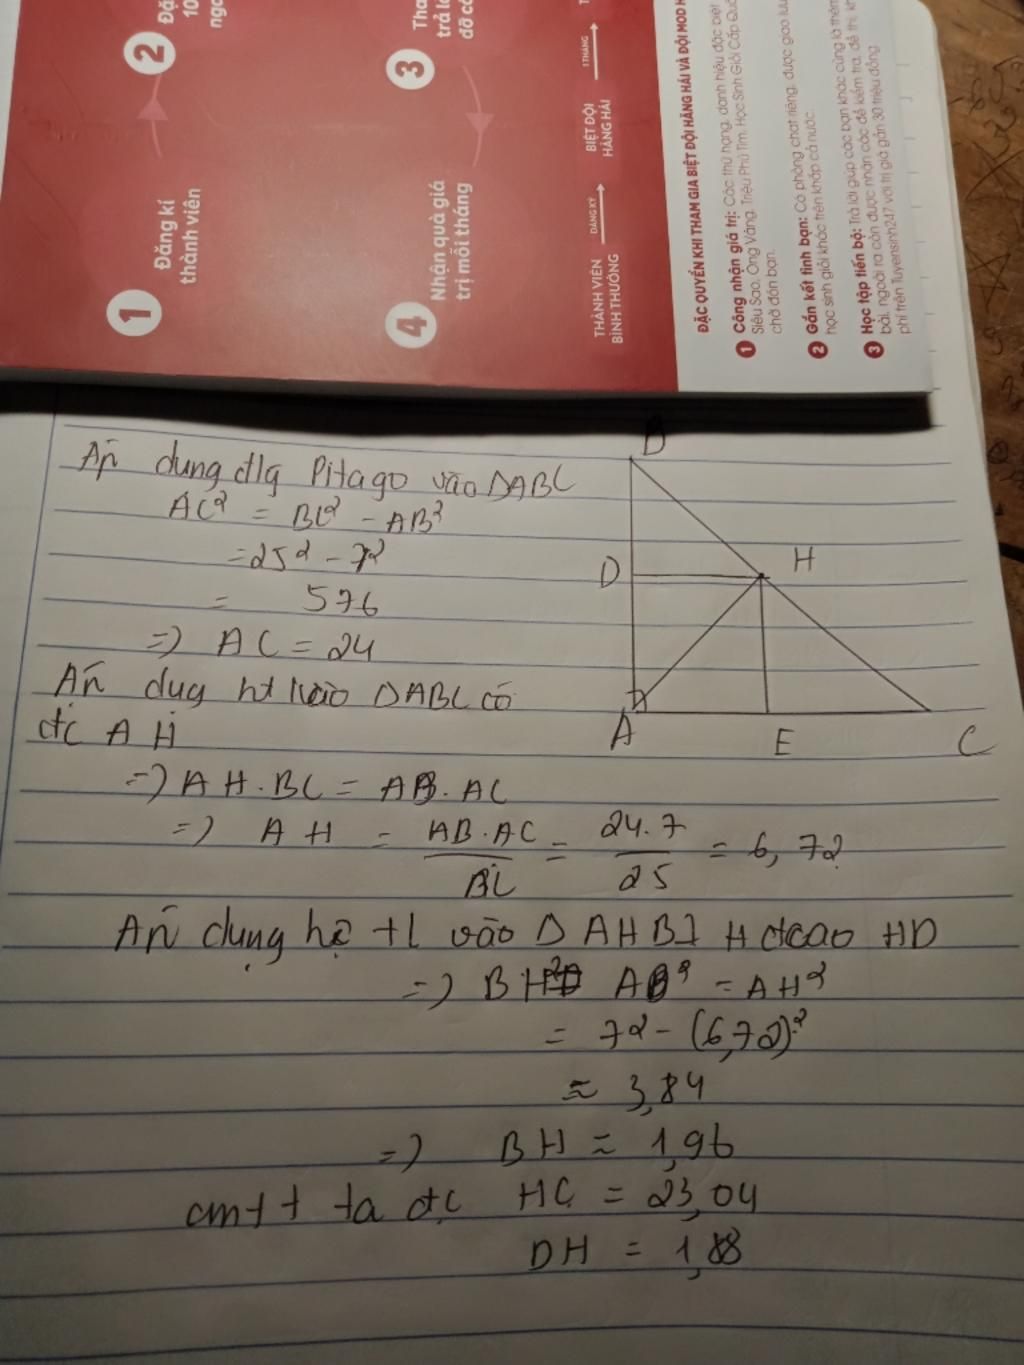 1
Đăng kí
thành viên
2
4
Nhận quà giá
trị mỗi tháng
3
THÀNH VIÊN
BÌNH THƯỜNG
ĐĂNG KÝ
BIỆT ĐỘI
HĂNG HÁI
1 THÁNG
ĐẶC QUYỀN KHI THAM GIA BIỆT ĐỘI HĂNG HÁI VÀ ĐỘI MOD
1 Công nhận giá trị: Các thứ hạng, danh hiệu đặc biệt
Siêu Sao, Ong Vàng, Triệu Phú Tim, Học Sinh Giỏi Cấp
chờ đón bạn.
2 Gắn kết tình bạn: Có phòng chat riêng, được giao lưu
học sinh giỏi khác trên khắp cả nước.
3 Học tập tiến bộ: Trả lời giúp các bạn khác cũng là
bài, ngoài ra còn được nhận các đề kiểm tra, đề thi,
phí trên Tuyensinh247 với trị giá gần 30 triệu đồng
B
D
H
A
E
C
Áp dung đlg Pitago vào ΔABC
AC² = BC² - AB²
= 25² - 7²
= 576
=> AC = 24
dug ht vào ΔABC có
đc AH
=> AH.BC = AB.AC
=> AH = AB.AC / BC = 24.7 / 25 = 6,72
dụng hệ tl vào Δ AHB ⊥ H đcao HD
=> BH² AB² = AH²
= 7² - (6,72)²
≈ 3,84
=> BH ≈ 1,96
cmtt ta đc HC = 23,04
DH = 1,88